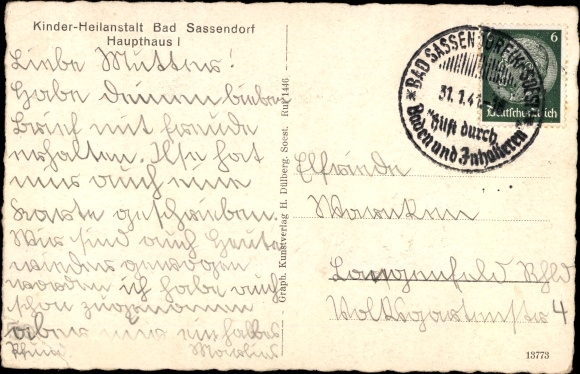 Kinder-Heilanstalt Bad Sassendorf
Haupthaus I
Liebe Mutter!
Habe deinen lieben
Brief mit Freude
erhalten. Ilse hat
mir auch eine
Karte geschrieben.
Wir sind auch Heute
wieder gewogen
worden ich habe auch
schon zugenomen
aber nur ein halbes
Graph. Kunstverlag H. Dülberg. Soest. Ruf 1446
BAD SASSENDORF (KR. SOEST)
31.1.41
Hilft durch
Baden und Inhalieren
6
Deutsches Reich
Elfriede
Langenfeld Rhld
Volksgartenstr 4
13773